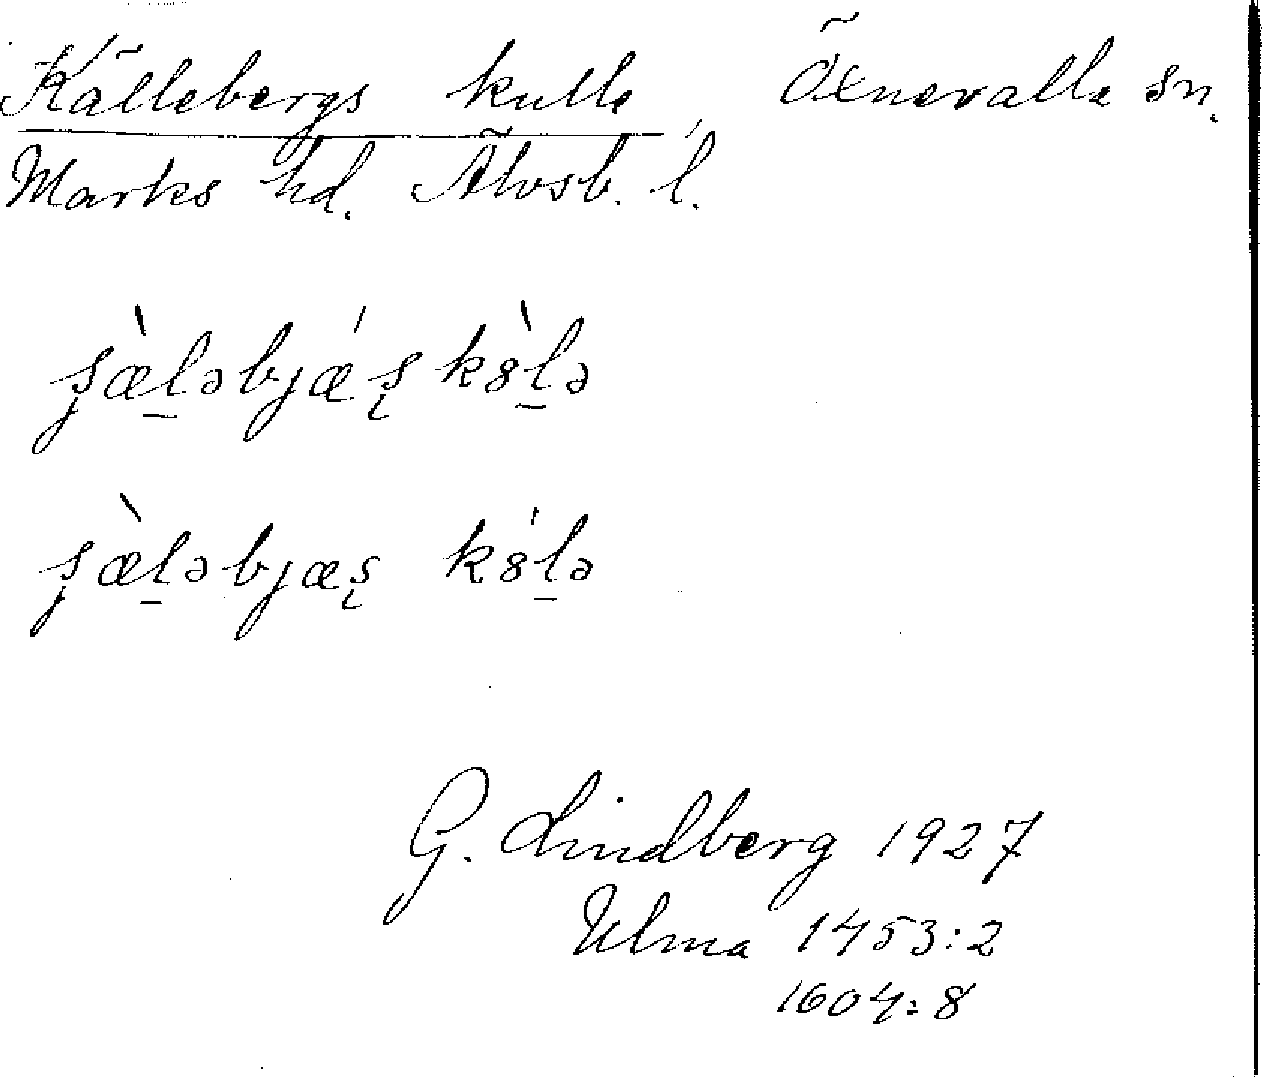 Källebergs kulle, Öxnevalla sn.
Marks hd. Älvsb. l.
ʂæ̀l̲əbjǽʂ kɞ̀l̲ə
ʂæ̀l̲əbjæʂ kɞ́l̲ə
G. Lindberg 1927
Ulma 1453:2
1604:8